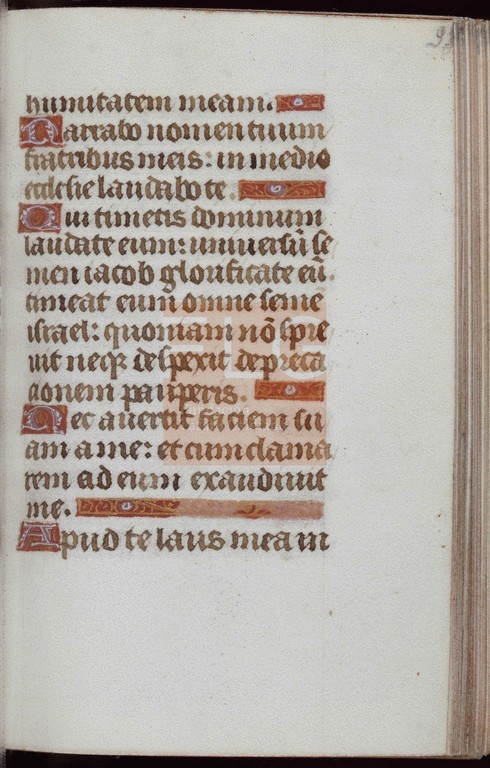 humilitatem meam.
Narrabo nomen tuum
fratribus meis: in medio
ecclesie laudabo te.
Qui timetis dominum
laudate eum: uniuersū se
men iacob glorificate eū.
timeat eum omne semē
israel: quoniam nō spre
uit neqꝫ despexit depreca
tionem pauperis.
Nec auertit faciem su
am a me: et cum clama
rem ad eum exaudiuit
me.
Apud te laus mea in